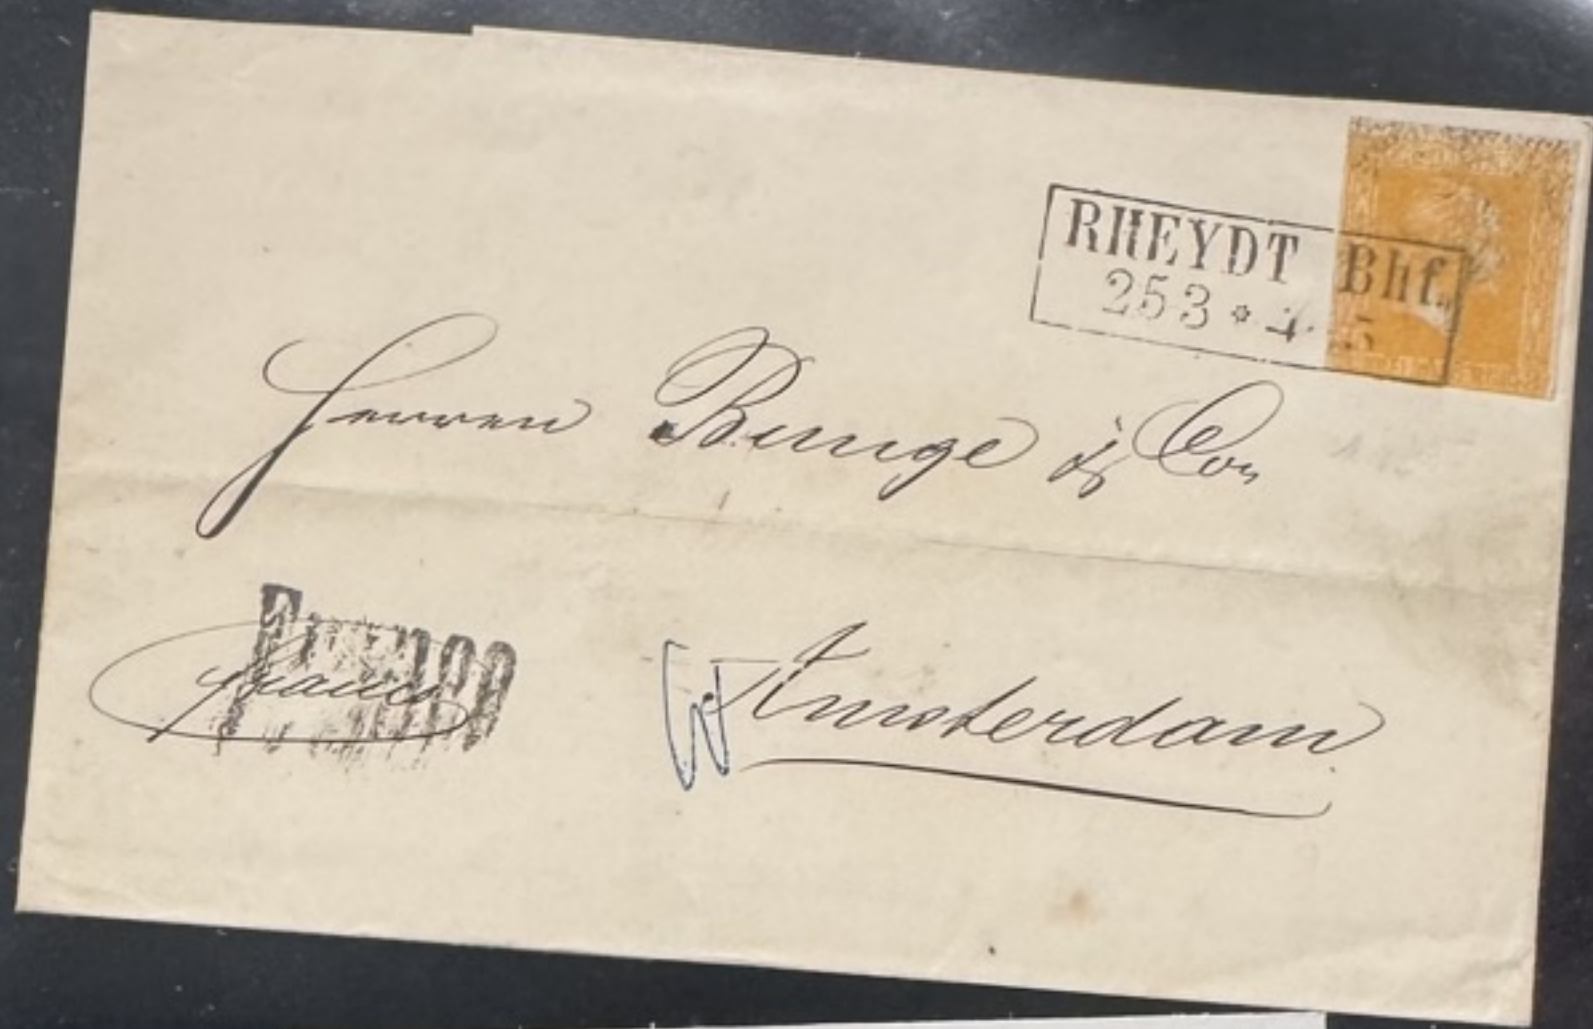 RHEYDT Bhf.
253 * 4 · 5
Herren Bunge & Co
franco
Amsterdam